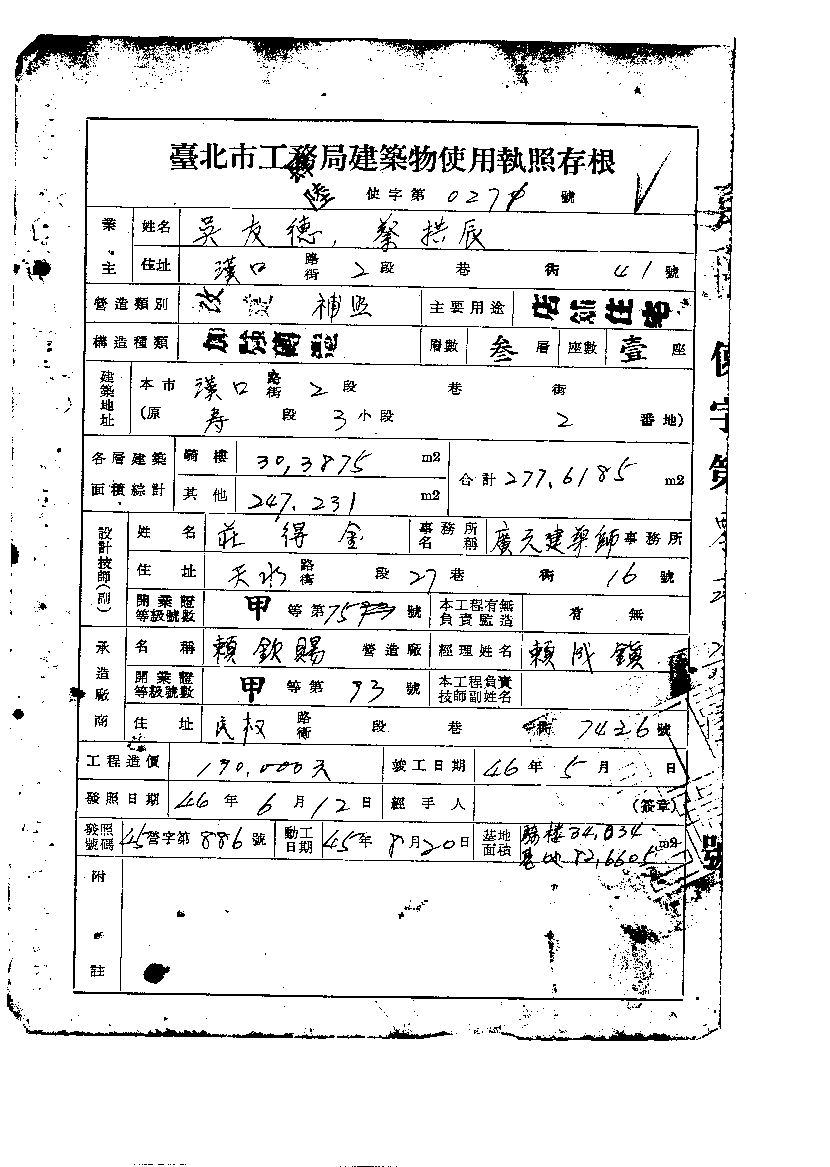 臺北市工務局建築物使用執照存根
陸 使字第 027 號
業主 姓名 吳友德、蔡拱辰
住址 漢口 路街 2 段 巷 衖 41 號
營造類別 改 補照 主要用途 店 住宅
構造種類 加強磚造 層數 叁 層 座數 壹 座
建築地址 本市 漢口 路街 2 段 巷 衖
(原 寿 段 3 小段 2 番地)
各層建築面積綜計 騎樓 30,3875 m2 合計 277.6185 m2
其他 247.231 m2
設計技師(副) 姓名 莊得金 事務所名稱 廣元建築師 事務所
住址 天水 路街 段 27 巷 衖 16 號
開業證等級號數 甲 等第 75 號 本工程有無負責監造 有 無
承造廠商 名稱 賴欽賜 營造廠 經理姓名 賴成鎮
開業證等級號數 甲 等第 93 號 本工程負責技師副姓名
住址 民权 路街 段 巷 衖 7426 號
工程造價 190,000元 竣工日期 46 年 5 月 日
發照日期 46 年 6 月 12 日 經手人 (簽章)
發照號碼 45 營字第 886 號 動工日期 45 年 8 月 20 日 基地面積 騎樓 34,834 基地 82,6605 m2
附註
使字第
號